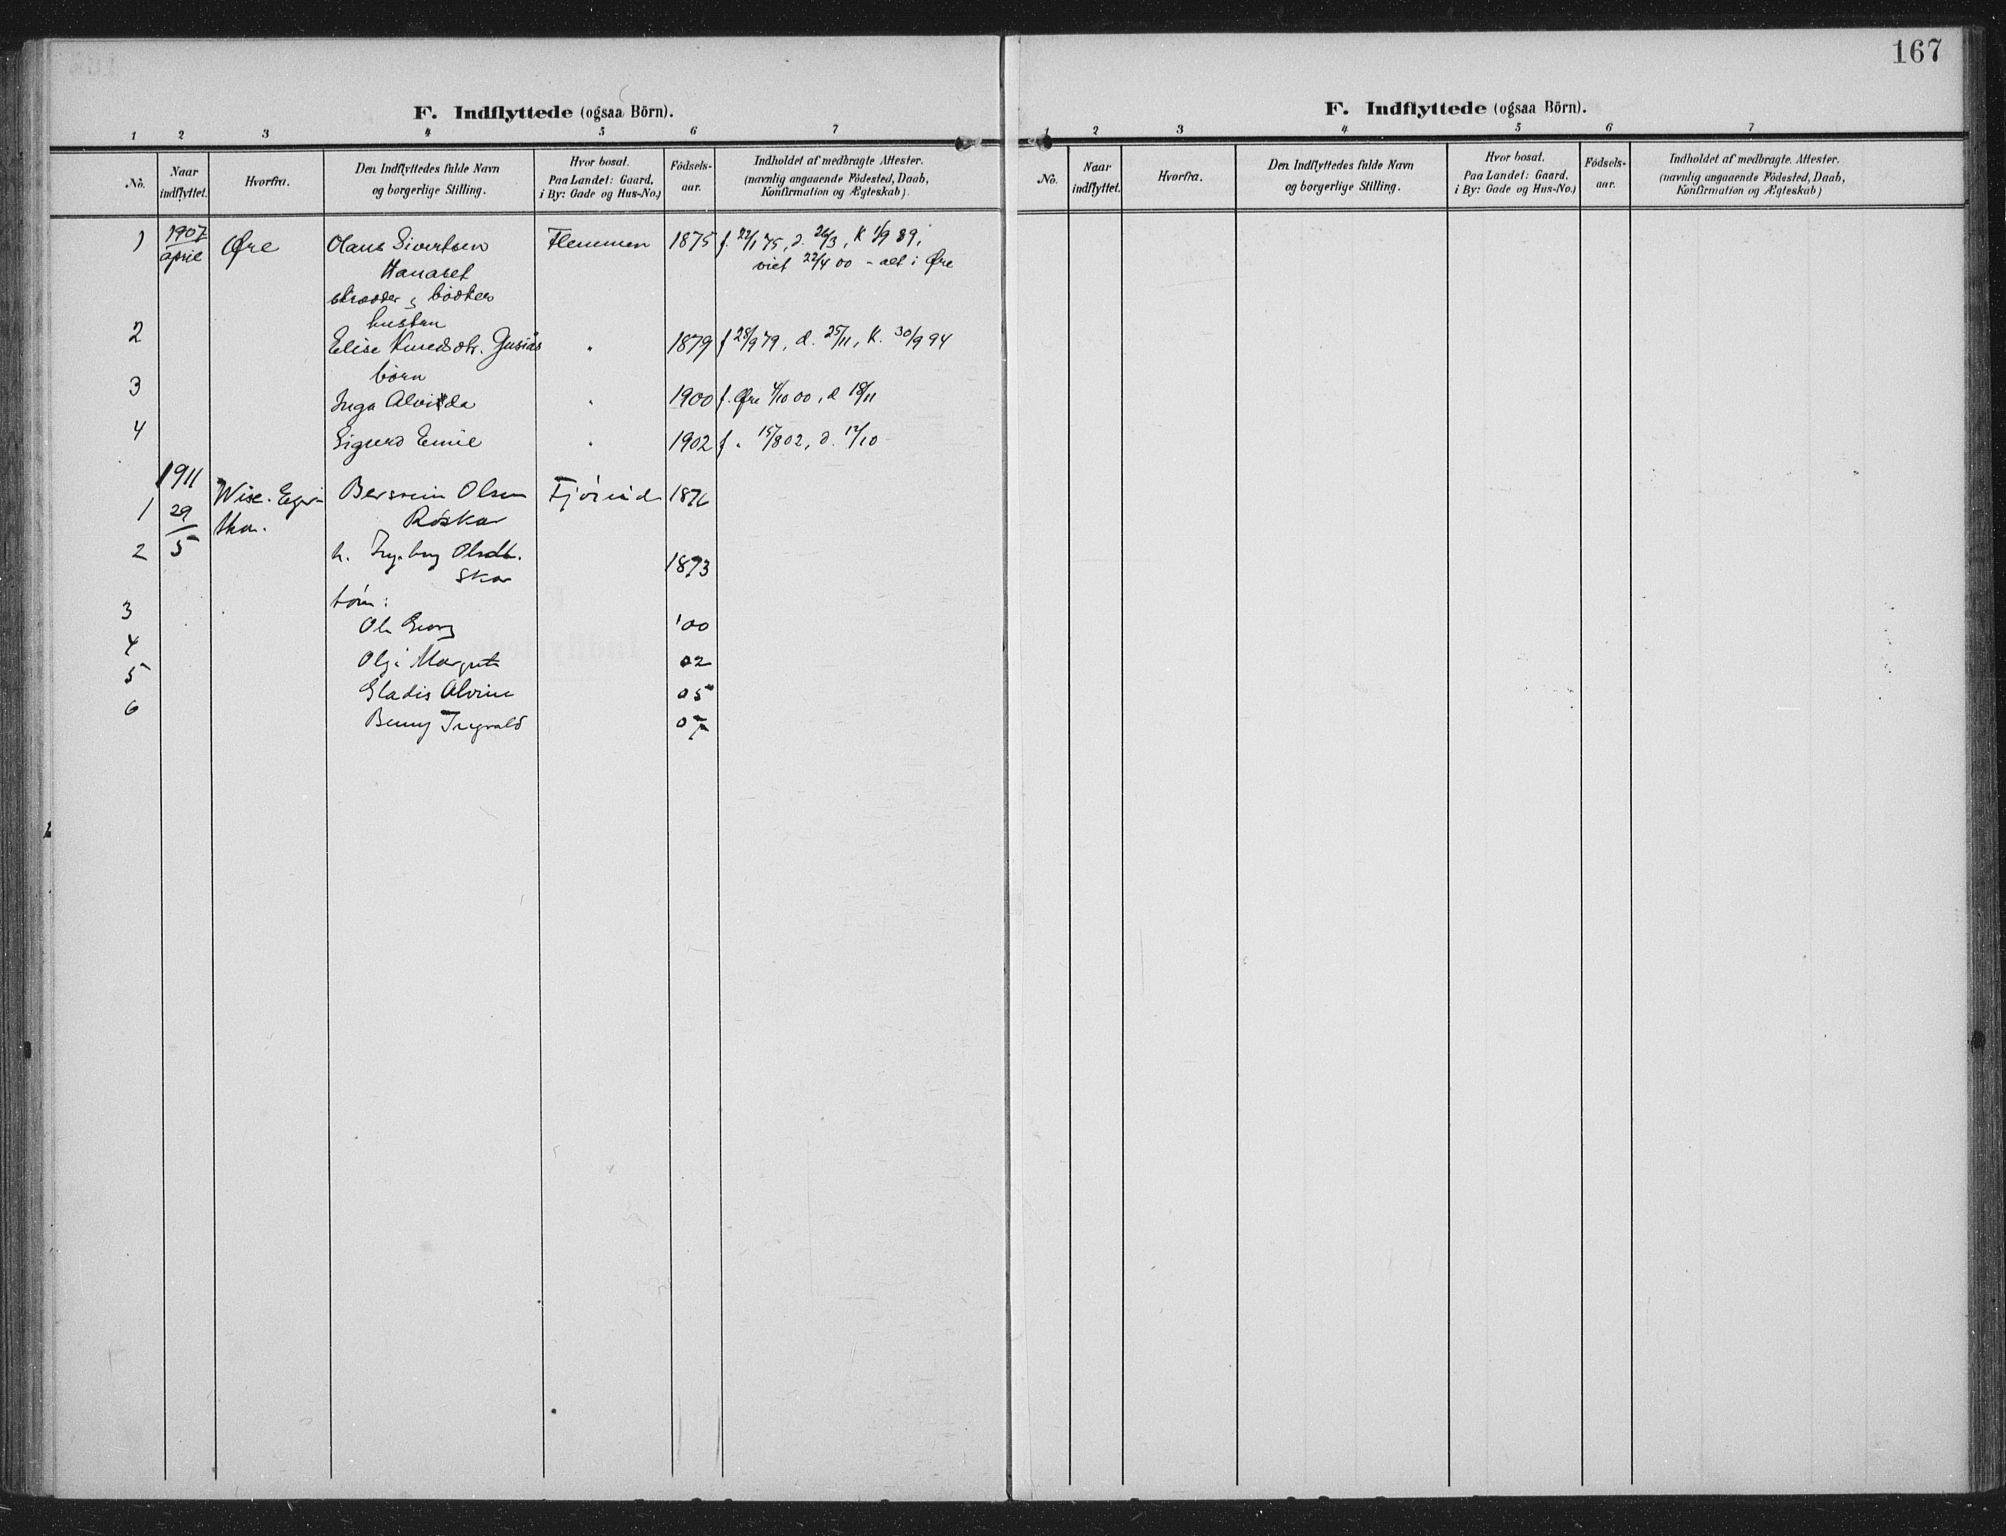 167
F. Indflyttede (ogsaa Börn).
1 2 3 4 5 6 7
No. Naar indflyttet. Hvorfra. Den Indflyttedes fulde Navn og borgerlige Stilling. Hvor bosat. Paa Landet: Gaard, i By: Gade og Hus-No.) Födsels-aar. Indholdet af medbragte Attester. (navnlig angaaende Födested, Daab, Konfirmation og Ægteskab).
1 1907 april Øre Olaus Sivertsen Flemmen 1875 f. 22/1 75, d. 26/3, K 1/9 89,
Hanaset viet 22/4 00 - alt i Øre
skrædder & bødker
hustru
2 Elise Knudsdtr. Gusiås " 1879 f 28/9 79, d. 25/11, K. 30/9 94
børn
3 Inga Alvilda " 1900 f. Øre 4/10 00, d 18/11
4 Sigurd Emil " 1902 f " 15/8 02, d. 12/10
1911
1 29/5 Bersvein Olsen 1876
Røskar
2 h. Ingebørg Olsdt. 1873
Skar
børn:
3 Ole Georg '00
4 Margrete 02
5 Gladis Alvine 05
6 Benny Trygvald 07
F. Indflyttede (ogsaa Börn).
1 2 3 4 5 6 7
No. Naar indflyttet. Hvorfra. Den Indflyttedes fulde Navn og borgerlige Stilling. Hvor bosat. Paa Landet: Gaard, i By: Gade og Hus-No.) Födsels-aar. Indholdet af medbragte Attester. (navnlig angaaende Födested, Daab, Konfirmation og Ægteskab)